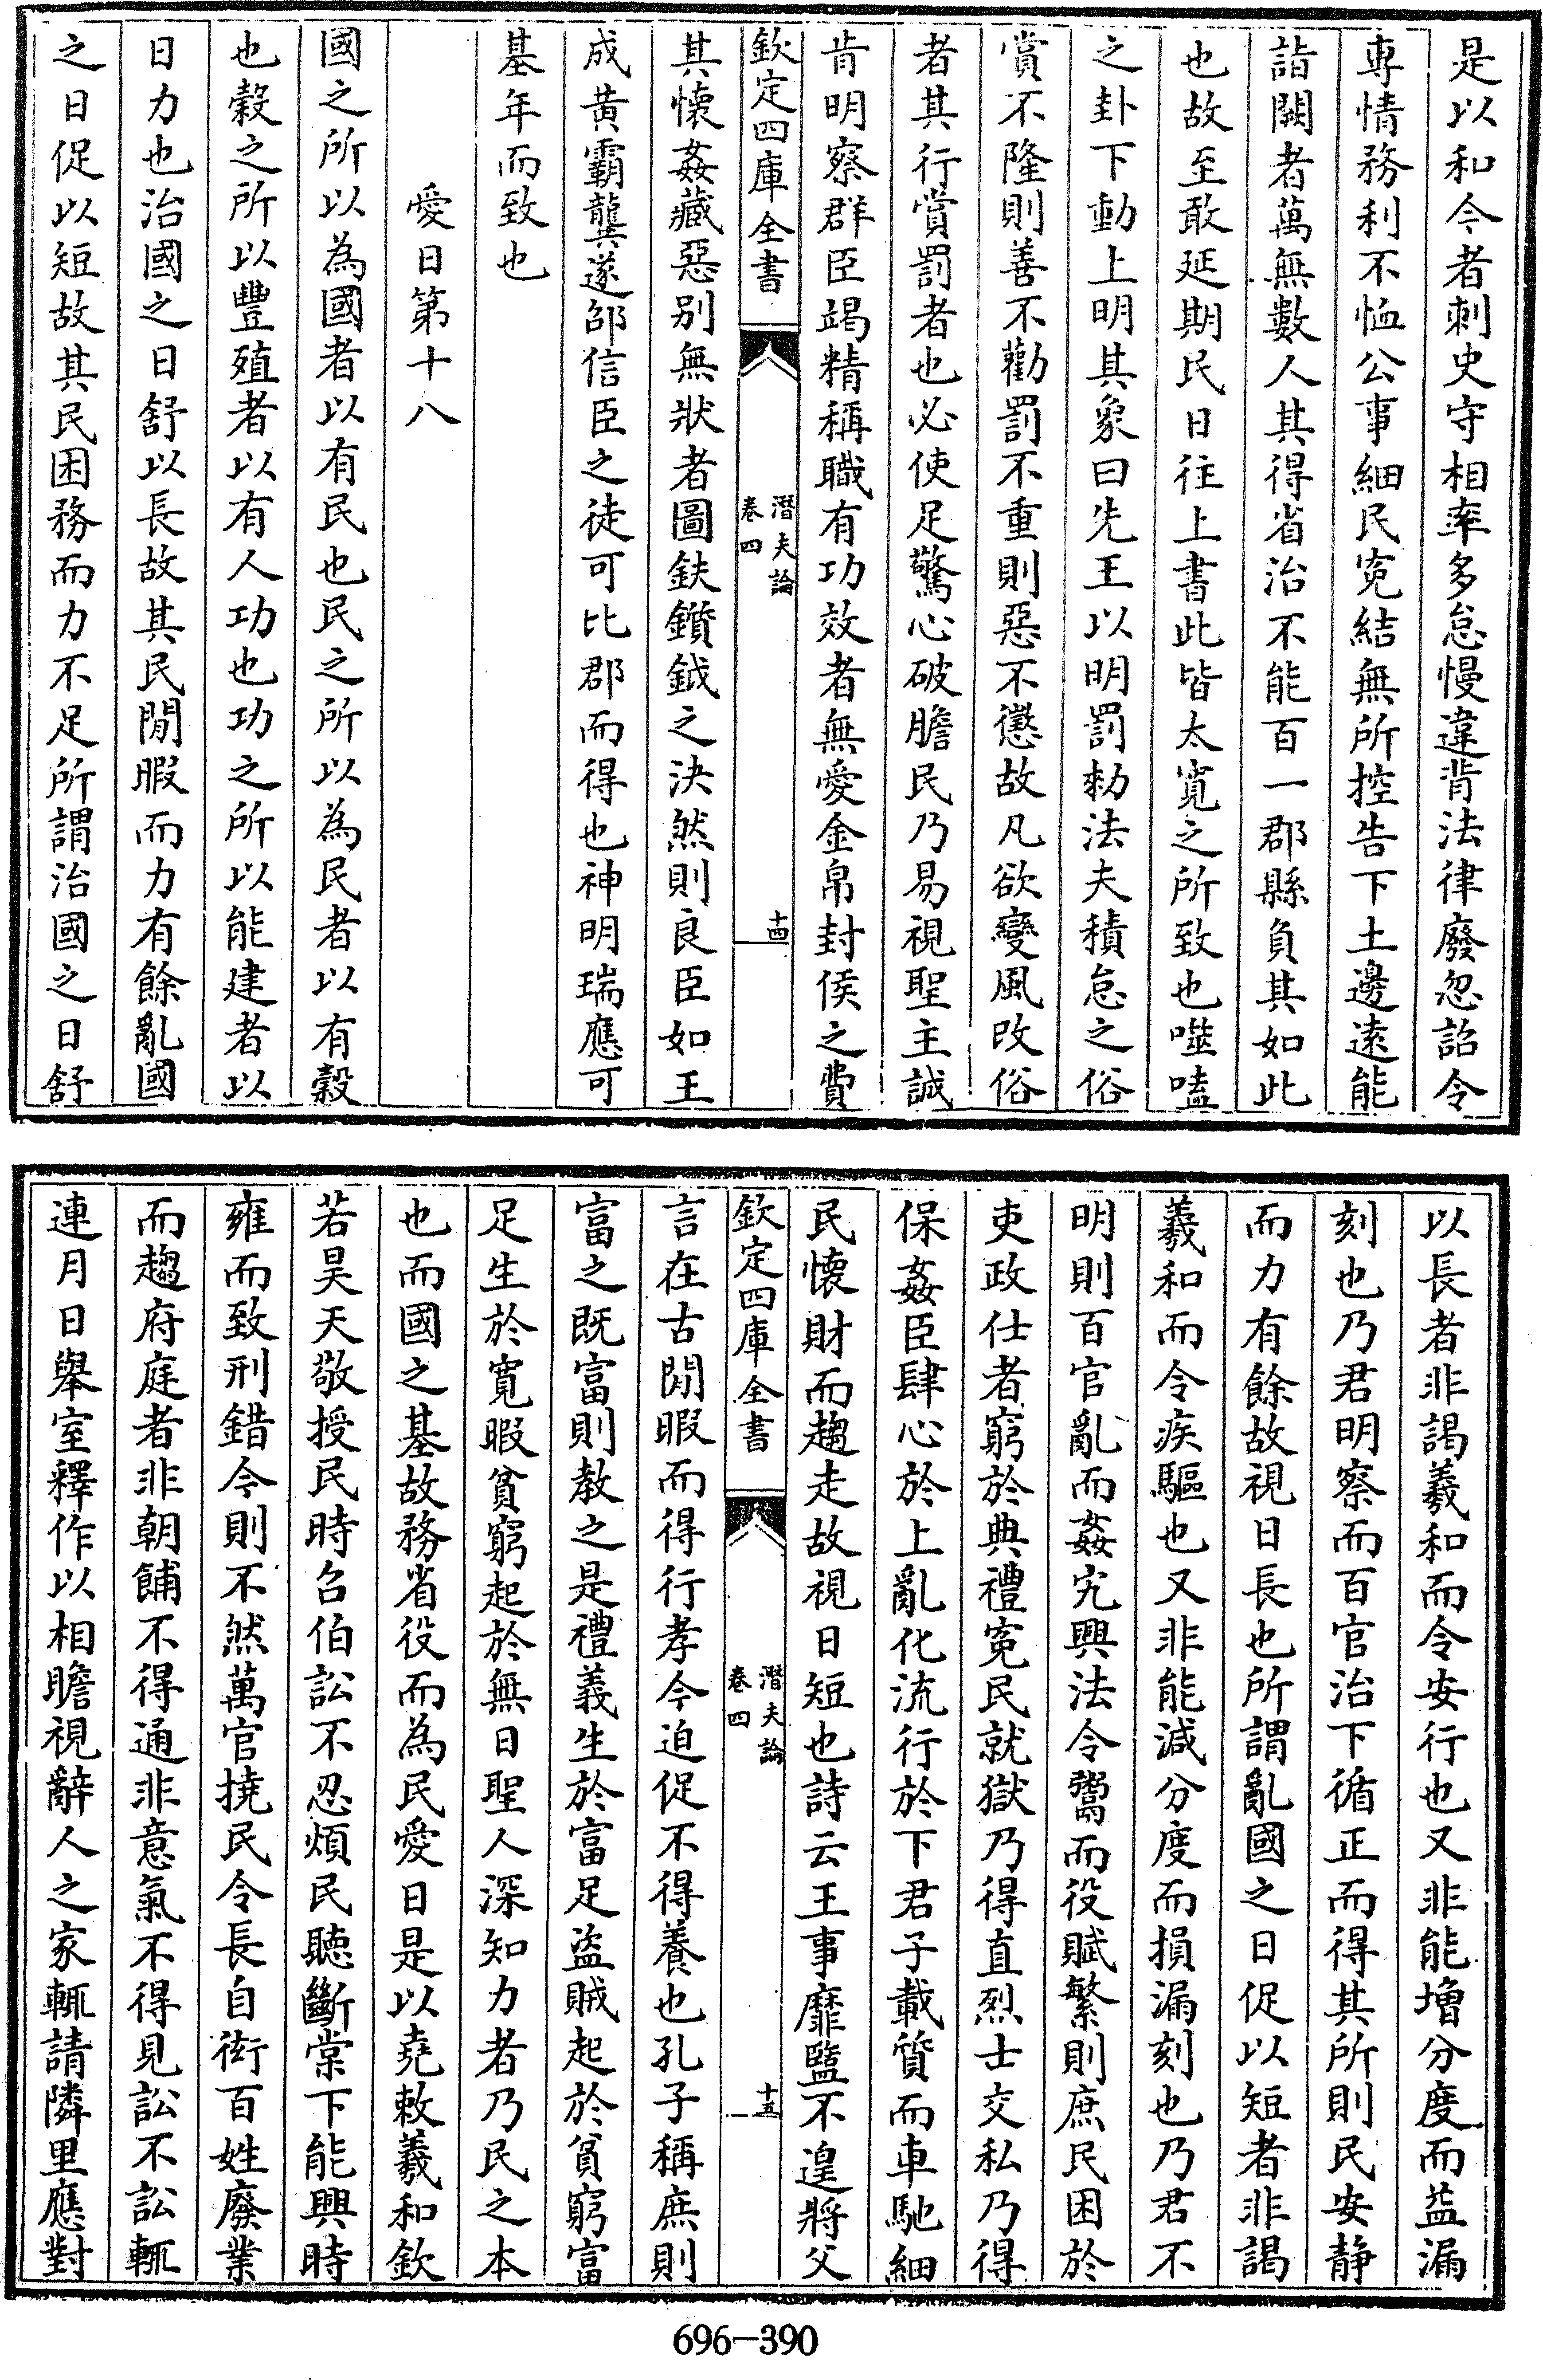 是以和令者刺史守相率多怠慢違背法律廢忽詔令
專情務利不恤公事細民寃結無所控告下土邊遠能
詣闕者萬無數人其得省治不能百一郡縣負其如此
也故至敢延期民日往上書此皆太寛之所致也噬嗑
之卦下動上明其象曰先王以明罰勑法夫積怠之俗
賞不隆則善不勸罰不重則惡不懲故凡欲變風改俗
者其行賞罰者也必使足驚心破膽民乃易視聖主誠
肯明察群臣竭精稱職有功效者無愛金帛封侯之費
欽定四庫全書
潛夫論
卷四
十四
其懐姦藏惡别無狀者圖鈇鑕鉞之決然則良臣如王
成黄霸龔遂邵信臣之徒可比郡而得也神明瑞應可
基年而致也
愛日第十八
國之所以為國者以有民也民之所以為民者以有穀
也穀之所以豐殖者以有人功也功之所以能建者以
日力也治國之日舒以長故其民閒暇而力有餘亂國
之日促以短故其民困務而力不足所謂治國之日舒
以長者非謁羲和而令安行也又非能增分度而益漏
刻也乃君明察而百官治下循正而得其所則民安静
而力有餘故視日長也所謂亂國之日促以短者非謁
羲和而令疾驅也又非能減分度而損漏刻也乃君不
明則百官亂而姦宄興法令鬻而役賦繁則庶民困於
吏政仕者窮於典禮寃民就獄乃得直烈士交私乃得
保姦臣肆心於上亂化流行於下君子載質而車馳細
民懐財而趨走故視日短也詩云王事靡盬不遑將父
欽定四庫全書
潛夫論
卷四
十五
言在古閒暇而得行孝今迫促不得養也孔子稱庶則
富之既富則教之是禮義生於富足盗賊起於貧窮富
足生於寛暇貧窮起於無日聖人深知力者乃民之本
也而國之基故務省役而為民愛日是以堯敕羲和欽
若昊天敬授民時召伯訟不忍煩民聽斷棠下能興時
雍而致刑錯今則不然萬官撓民令長自衒百姓廢業
而趨府庭者非朝餔不得通非意氣不得見訟不訟輒
連月日舉室釋作以相瞻視辭人之家輒請隣里應對
696-390